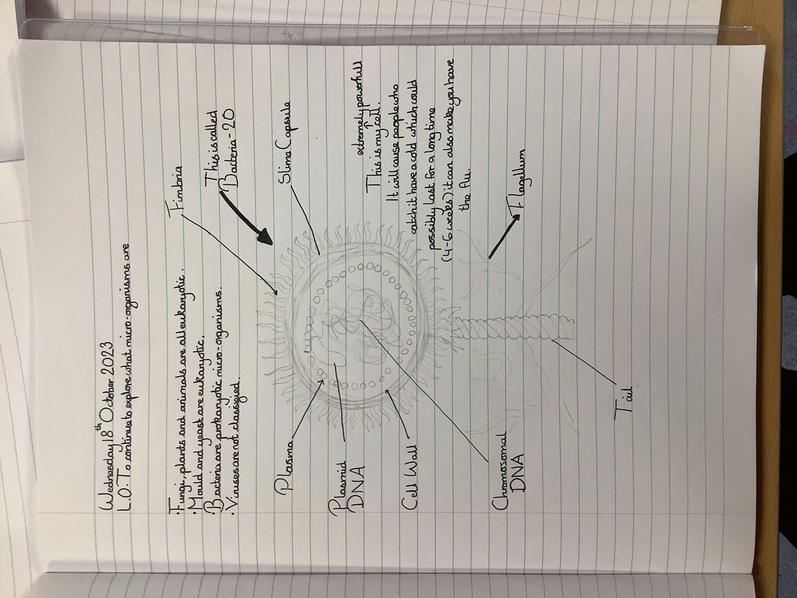 Wednesday 18th October 2023
L.O: To continue to explore what micro-organisms are
·Fungi, plants and animals are all eukaryotic.
·Mould and yeast are eukaryotic.
·Bacteria are prokaryotic micro-organisms.
·Viruses are not classified.
Fimbria
This is called
Bacteria-20
Slime Capsule
Plasma
Plasmid
DNA
Cell Wall
extremely powerfull
This is my cell.
It will cause people who
catch it have a cold which could
possibly last for a long time
(4-6 weeks) it can also make you have
the flu.
Chromosomal
DNA
Flagellum
Tail